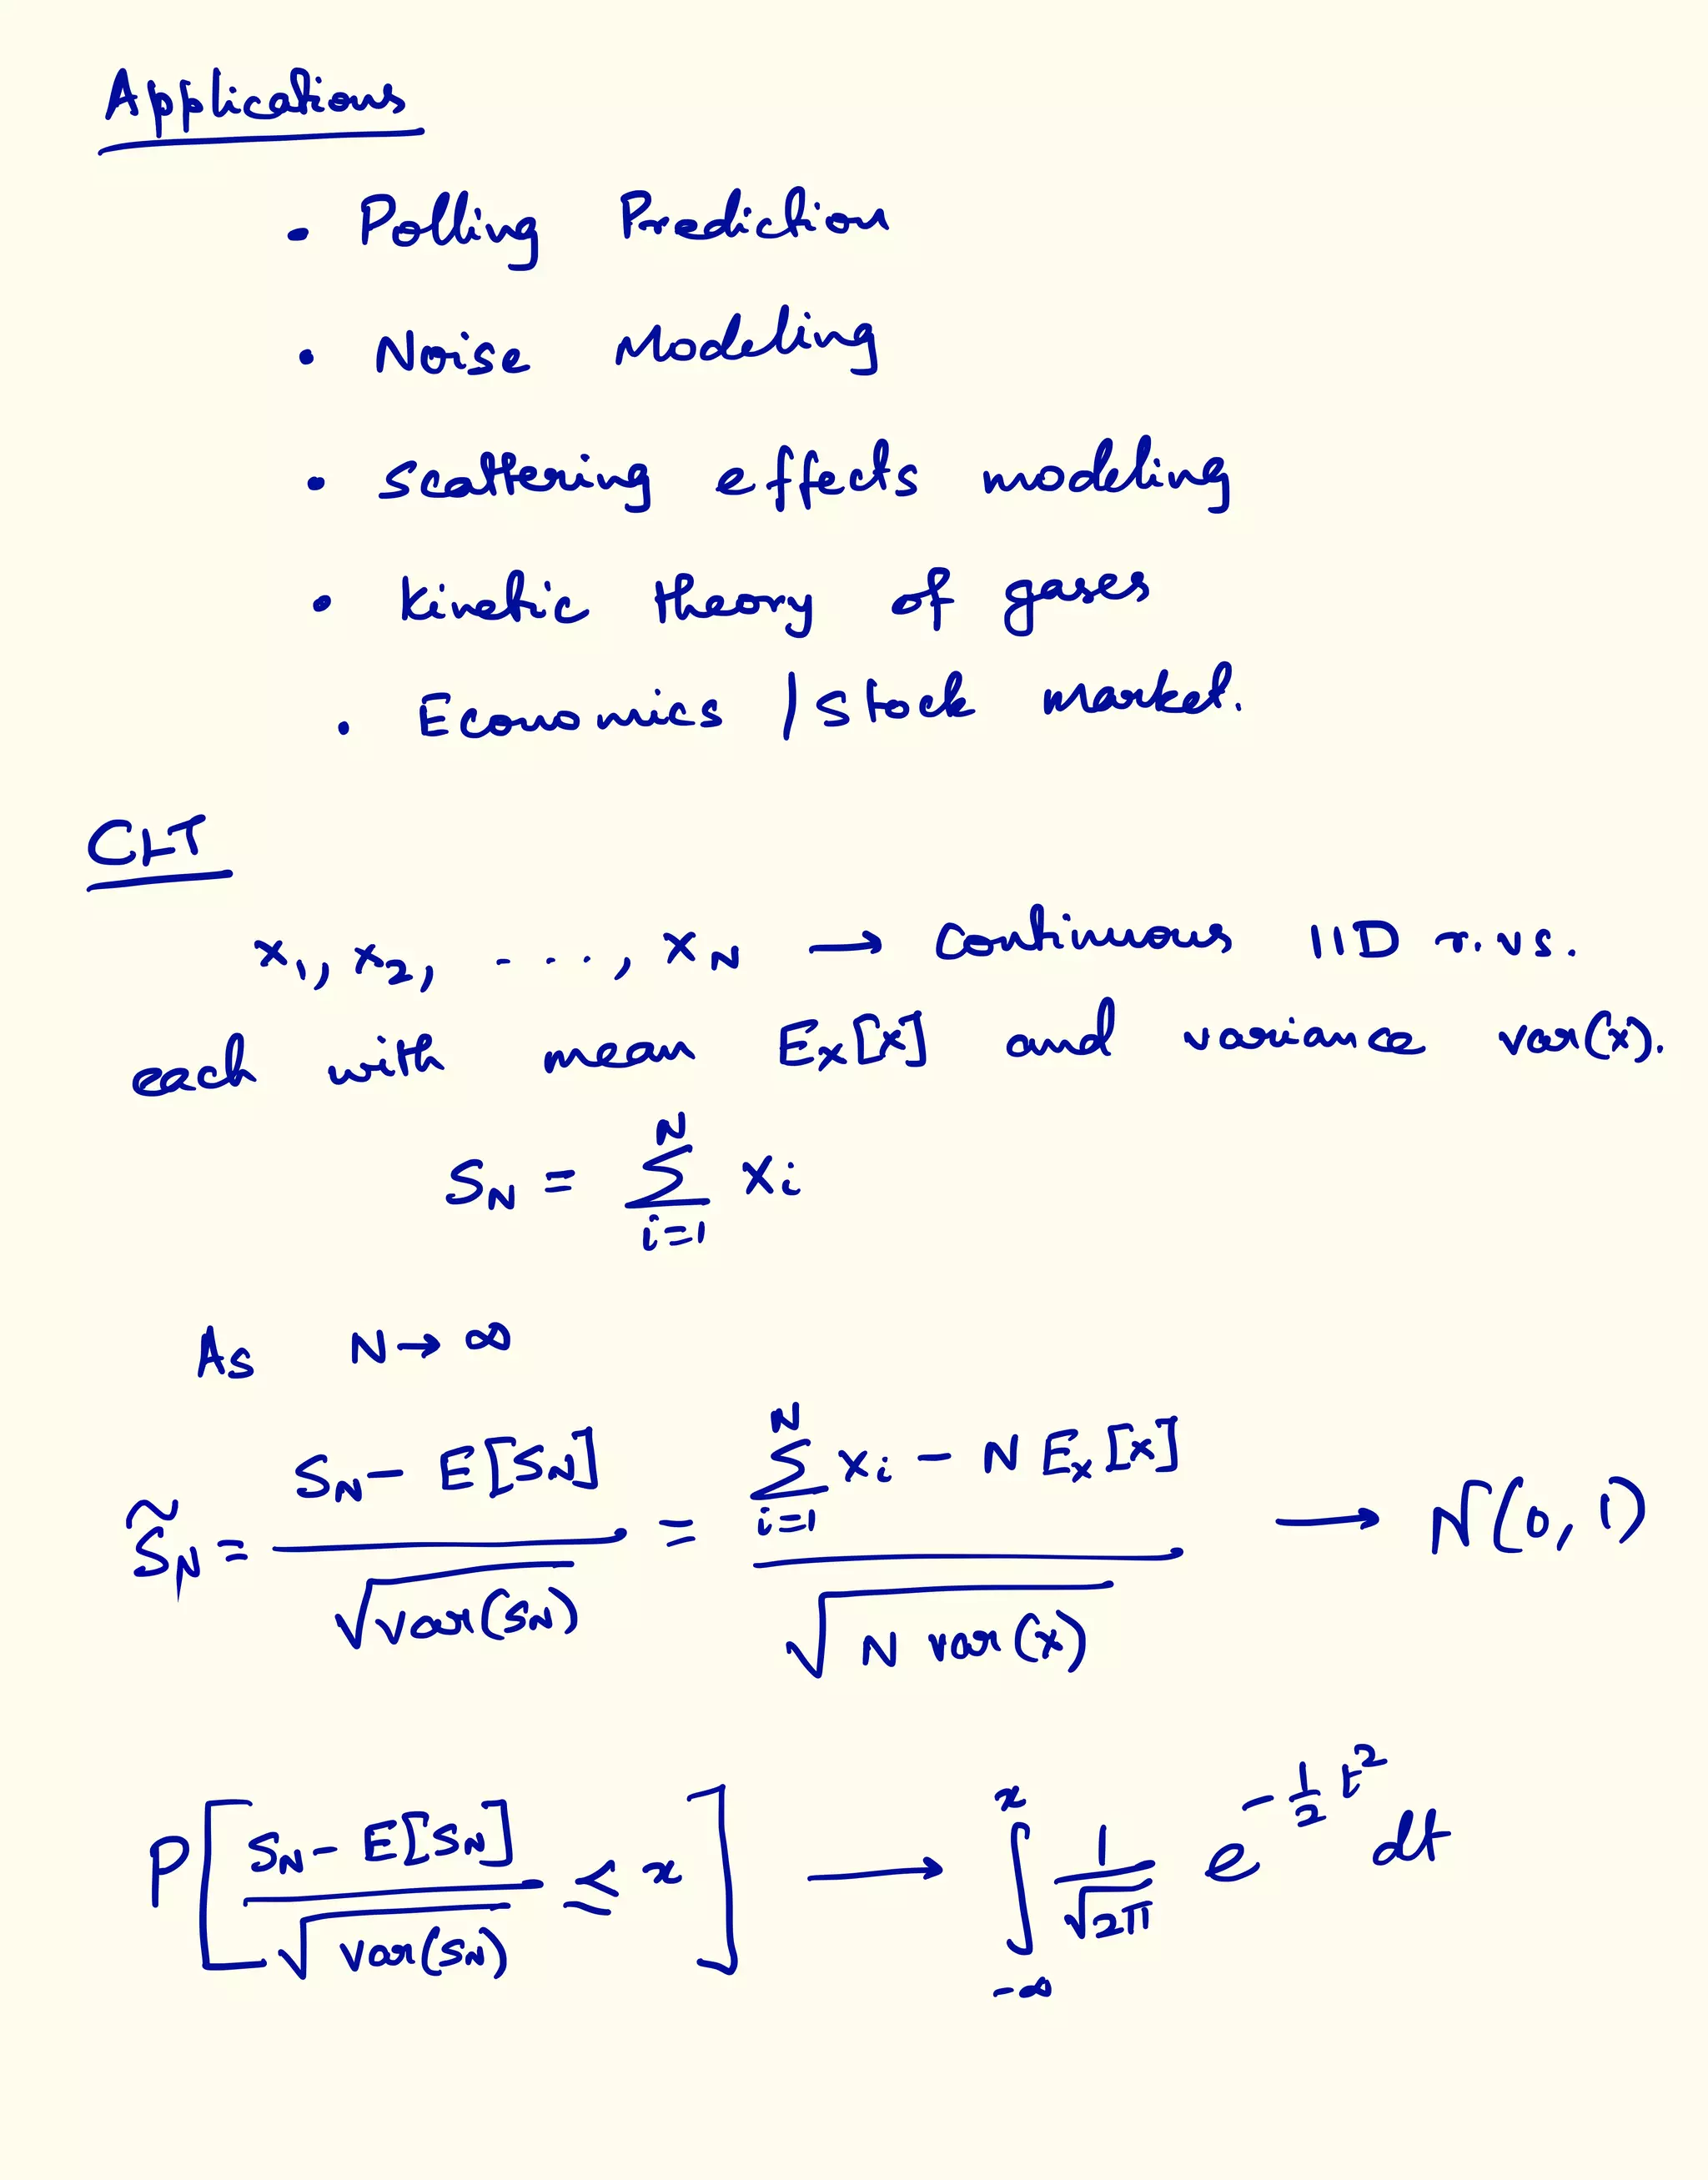 Applications
• Polling Prediction
• Noise Modeling
• Scattering effects modeling
• Kinetic theory of gases
• Economics / Stock market.
CLT
X₁, X₂, ...., X_N → continuous IID r.vs.
each with mean E_X[X] and variance var(X).
S_N = \sum_{i=1}^{N} X_i
As N → ∞
\tilde{S}_N = \frac{S_N - E[S_N]}{\sqrt{var(S_N)}} = \frac{\sum_{i=1}^{N} X_i - N E_X[X]}{\sqrt{N var(X)}} → N(0, 1)
P[ \frac{S_N - E[S_N]}{\sqrt{var(S_N)}} ≤ x ] → \int_{-∞}^{x} \frac{1}{\sqrt{2π}} e^{-\frac{1}{2} t^2} dt